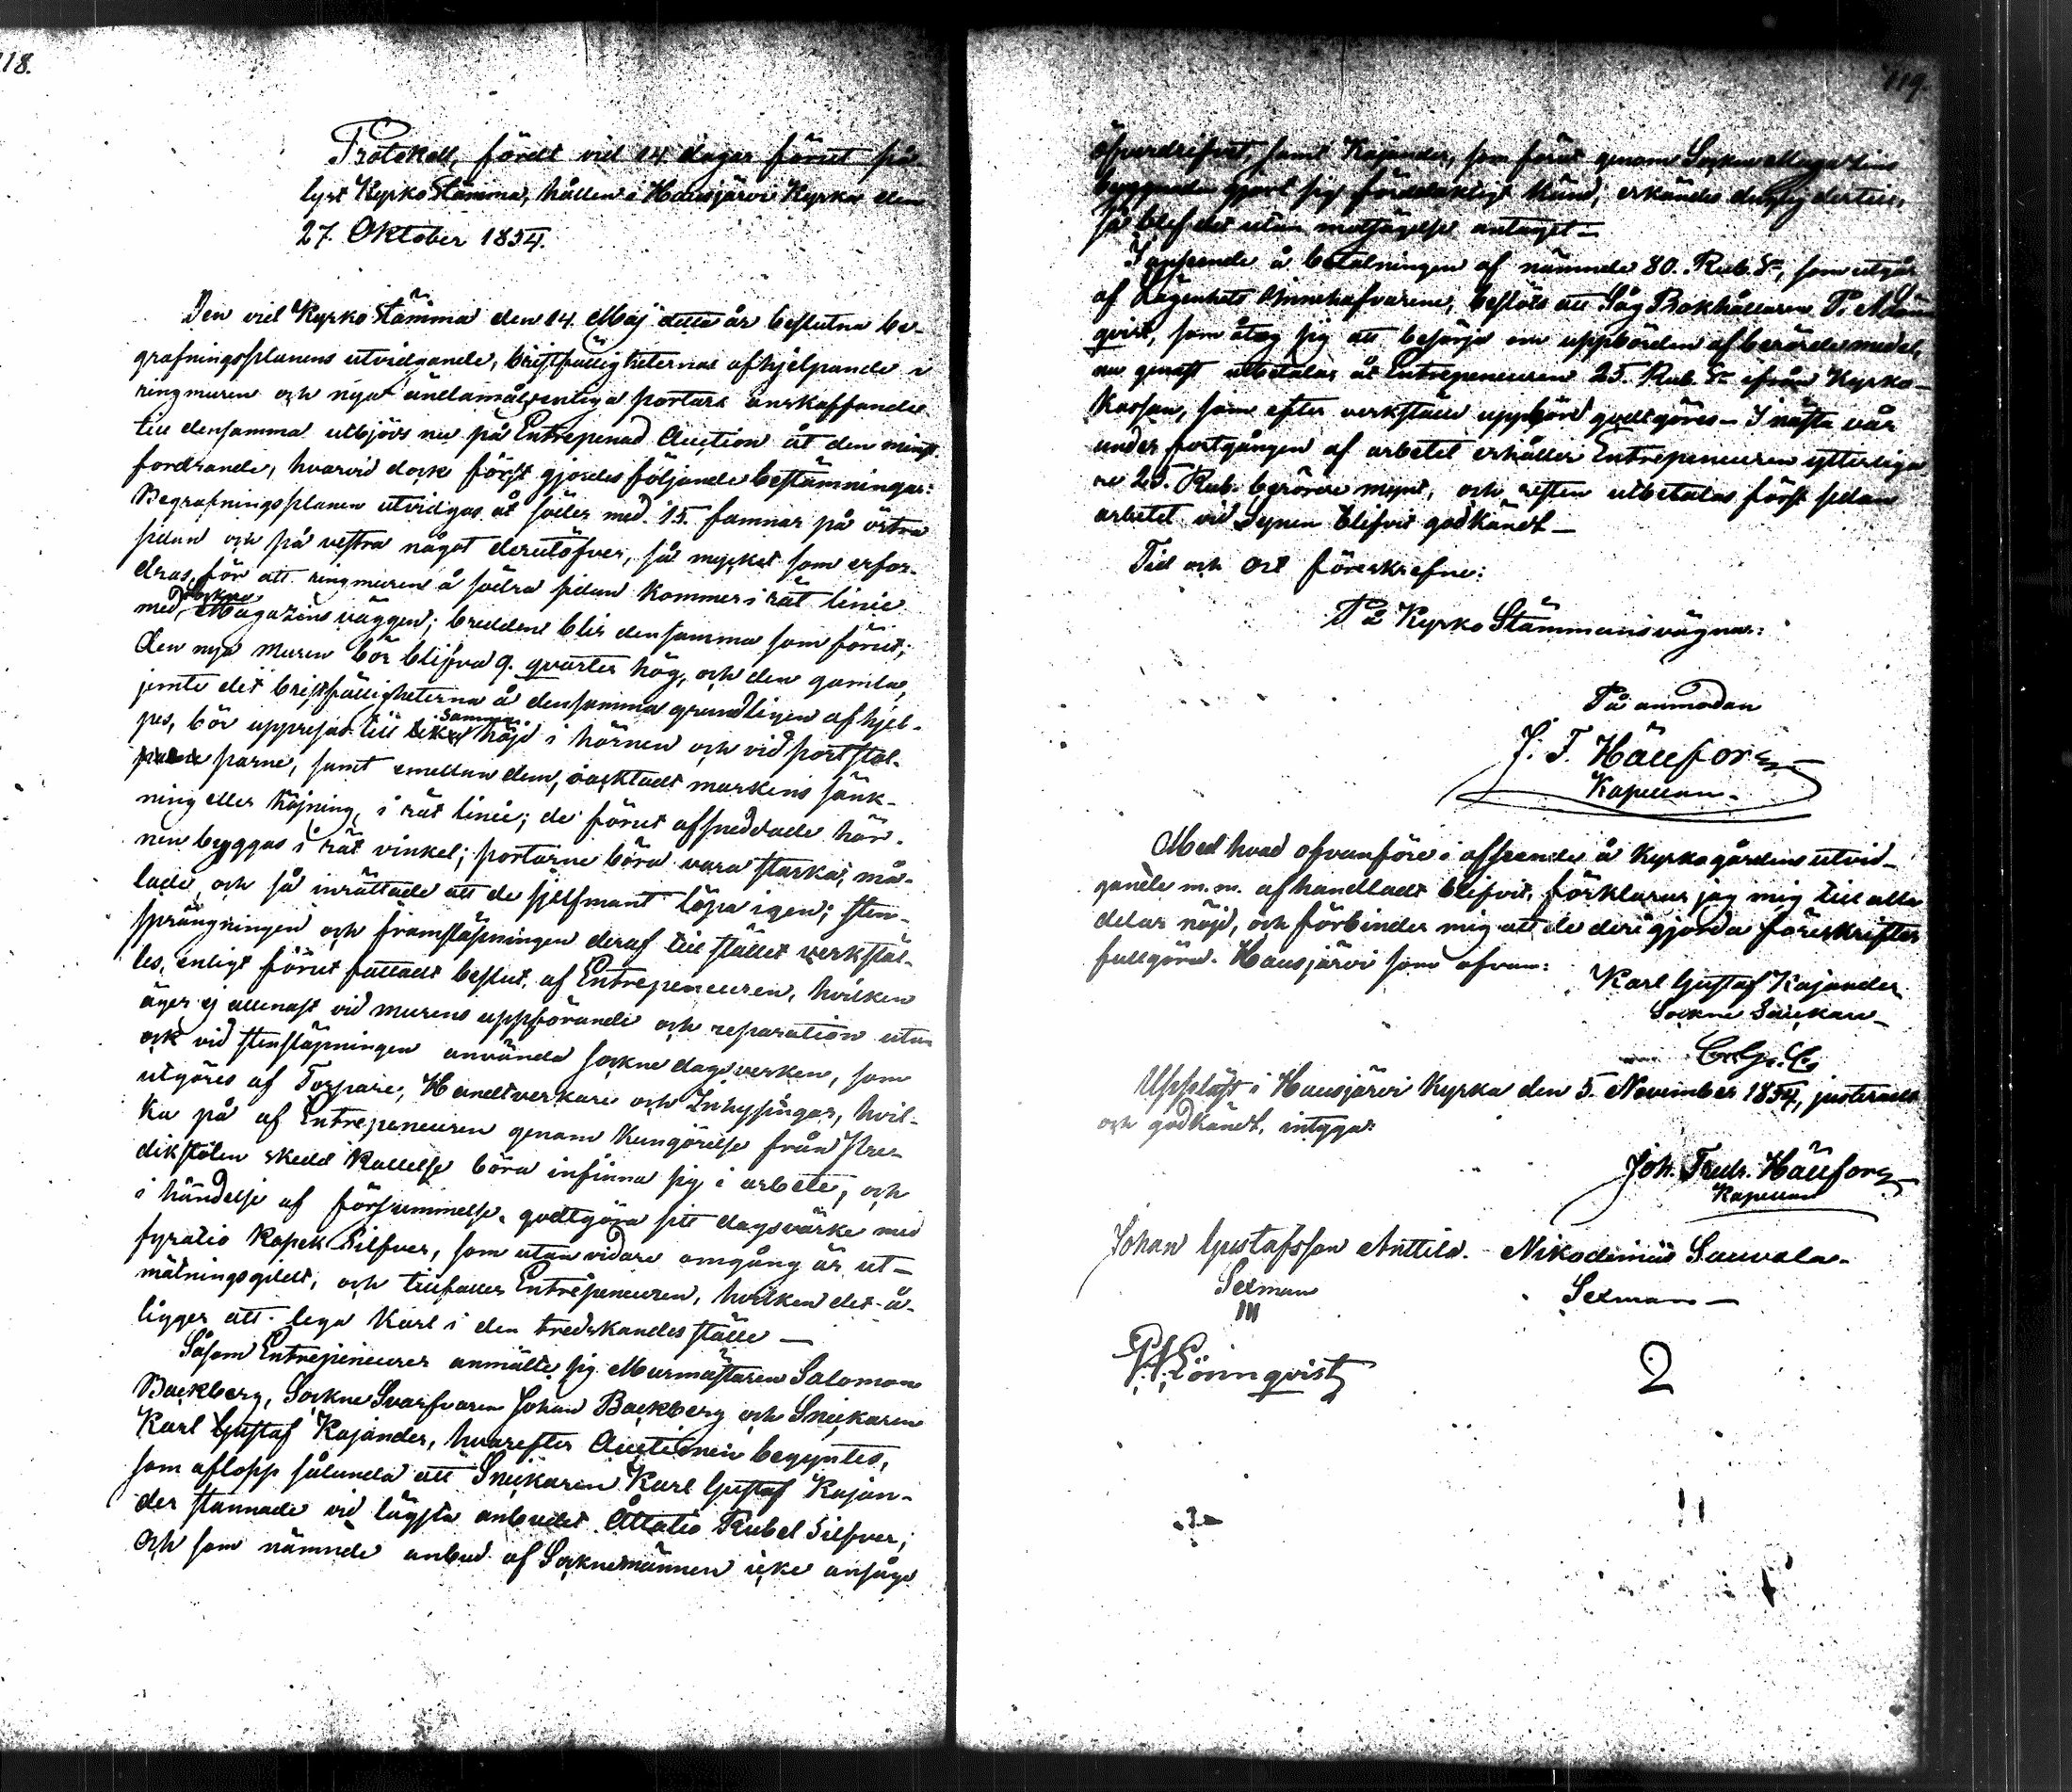 118.
Protokoll, fördt vid 14 dagar förut på-
lyst Kyrko Stämma, hållen i Hausjärvi Kyrka den
27. Oktober 1854.
Den vid Kyrko Stämma den 14. Maj detta år beslutna be-
grafningsplanens utvidgande, bristfälligheternas afhjelpande i
ringmuren och nya ändamålsenliga portars anskaffande
till densamma utbjöds nu på Entrepenad Auction åt den minst
fordrande, hvarvid dock först gjordes följande bestämningar:
Begrafningsplanen utvidgas åt söder med 15. famnar på östra
sidan och på vestra något derutöfver, så mycket som erfor-
dras, för att ringmuren å södra sidan kommer i rät linie
med Sockne Magazins väggen; bredden blir densamma som förut;
Den nya muren bör blifva 9. qvarter hög, och den gamla,
jemte det bristfälligheterna å densamma grundligen afhjel-
pes, bör uppresas till samma höjd i hörnen och vid portstol-
parne, samt emellan dem, oacktadt markens sänk-
ning eller höjning, i rät linie; de förut afsneddade hör-
nen byggas i rät vinkel; portarne böra vara starka, må-
lade, och så inrättade att de sjelfmant löpa igen; sten-
sprängningen och framsläpningen deraf till stället verkstäl-
les, enligt förut fattadt beslut, af Entrepeneuren, hvilken
äger ej allenast vid murens uppförande och reparation utan
ock vid stensläpningen använda sockne dagsverken, som
utgöres af Torpare, Handtverkare och Inhysingar, hvil-
ka på af Entrepeneuren genom kungörelse från Pre-
dikstolen skedd kallelse böra infinna sig i arbete, och
i händelse af försummelse, godtgöra sitt dagsvärke med
fyratio kopek Silfver, som utan vidare omgång är ut-
mätningsgildt, och tillfaller Entrepeneuren, hvilken det å-
ligger att lega karl i den tredskandes ställe —
Såsom Entrepeneurer anmälte sig Murmästaren Salomon
Backberg, Sockne Svarfvaren Johan Backberg och Snickaren
Karl Gustaf Kajander, hvarefter Auctionen begyntes,
som aflopp sålunda att Snickaren Karl Gustaf Kajan-
der stannade vid lägsta anbudet Åttatio Rubel Silfver,
och som nämnde anbud af Socknemännen icke ansågs
119.
öfverdrifvet, samt Kajander, som förut genom Socken Magazins
byggnaden gjort sig fördelaktigt känd, erkändes duglig dertill,
så blef det utan motsägelse antaget —
I anseende å betalningen af nämnde 80. Rub. Sr, som utgår
af Lägenhets Innehafvarene, beslöts att Såg Bokhållaren P.
qvist, som åtog sig att besörja om uppbörden af berörde medel,
nu genast utbetalas åt Entrepeneuren 25. Rub. Sr ifrån Kyrko-
Kassan, som efter verkställd uppbörd godtgöres — I nästa vår
under fortgången af arbetet erhåller Entrepeneuren ytterliga-
re 25. Rub. berörde mynt, och resten utbetalas först sedan
arbetet vid Synen blifvit godkändt —
Tid och Ort föreskrefne:
På Kyrko Stämmans vägnar:
På anmodan
J. F. Hällfors
Kapellan.
Med hvad ofvanföre i afseende å kyrkogårdens utvid-
gande m. m. afhandladt blifvit, förklarar jag mig till alla
delar nöjd, och förbinder mig att de deri gjorda föreskrifter
fullgöra. Hausjärvi som ofvan:
Karl Gustaf Kajander
Sockne Snickare
Uppläst i Hausjärvi Kyrka den 5. November 1854, justeradt
och godkändt, intyga:
Joh. Fredr. Hällfors
Kapellan
Johan Gustafsson Anttila. Nikodemus Sauvala.
Sexman Sexman —
P. Lönnqvist